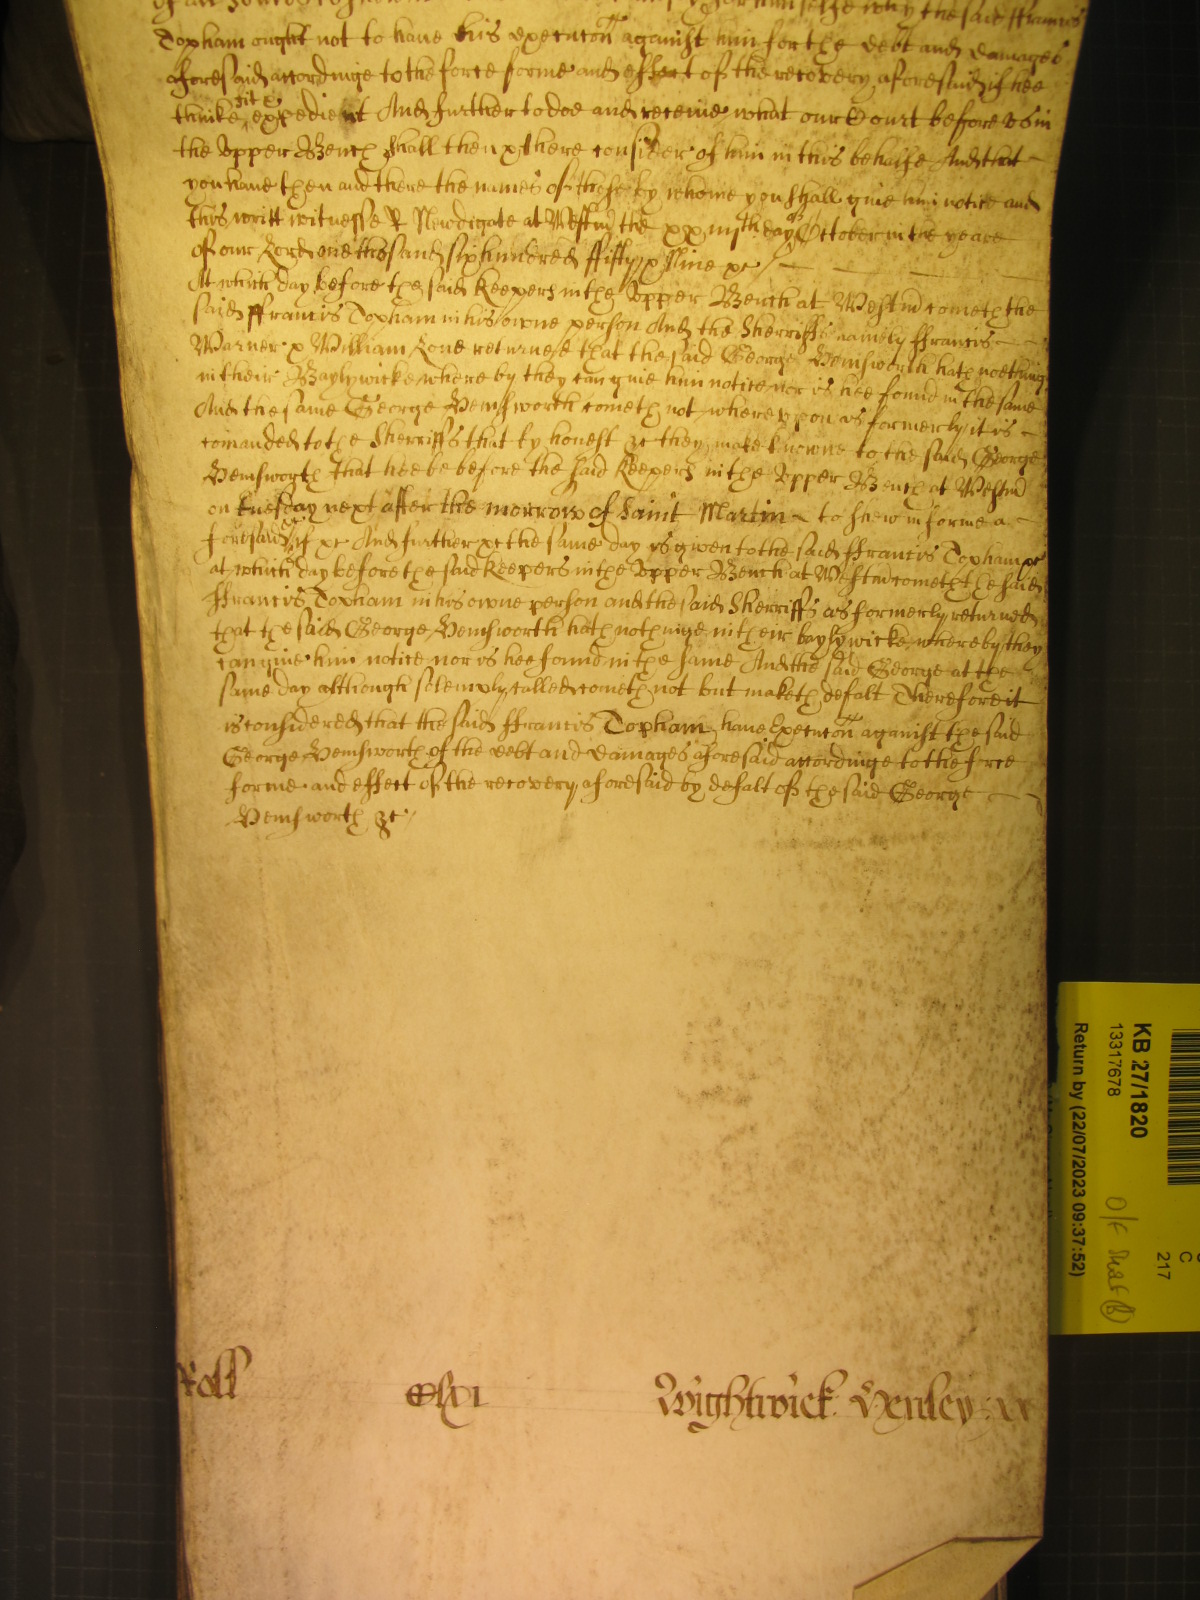 himselfe why the said ffrancis
Topham ought not to have his execucon against him for the debt and damages
aforesaid accordinge to the force forme and effect of the recovery aforesaid if hee
thinke it expedient And further to doe and receive what our Court before us in
the Upper Bench shall then & there consider of him in this behalfe And that
you have then and there the names of those by whome you shall give him notice and
this writt witnesse R Newdigate at Westm the day of October in the yeare
of our Lord one thousand six hundred fifty & Nine &c
At which day before the said Keepers in the Upper Bench at Westm cometh the
said ffrancis Topham in his owne person And the Sherriffs namely ffrancis
Warner & William Love returned that the said George Hemsworth hath nothing
in their Baylywicke where by they can give him notice nor is hee found in the same
And the same George Hemsworth cometh not whereupon as formerly it is
comanded to the Sherriffs that by honest &c they make knowne to the said George
Hemsworth that hee be before the said Keepers in the Upper Bench at Westm
on tuesday next after the morrow of Saint Martin to shew in forme a
foresaid if &c And further &c the same day is given to the said ffrancis Topham &c
at which day before the said Keepers in the Upper Bench at Westm cometh the said
ffrancis Topham in his owne person and the said Sherriffs as formerly returned
that the said George Hemsworth hath nothinge in their baylywicke whereby they
can give him notice nor is hee found in the same And the said George at the
same day although solemply called cometh not but maketh defalt Therefore it
is considered that the said ffrancis Topham have Execucon against the said
George Hemsworth of the debt and damages aforesaid accordinge to the force
forme and effect of the recovery aforesaid by defalt of the said George
Hemsworth &c
Roll Clxi Wightwick Henley
KB 27/1820
13317678
Return by (22/07/2023 09:37:52)
C
217